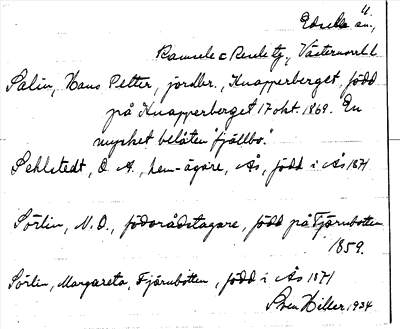 u.
Edsele sn.,
Ramsele o Resele tg., Västernorrl. l
Salin, Hans Petter, jordbr., Knapperberget, född
på Knapperberget 17 okt. 1869. En
mycket belåten "fjällbo."
Sehlstedt, O. A., hem.-ägare, Ås, född i Ås 1871
Sörlin, N.O., födorådstagare, född på Fjärnbotten
1859.
Sörlin, Margareta, Fjärnbotten, född i Ås 1871
Sven Hiller, 1934